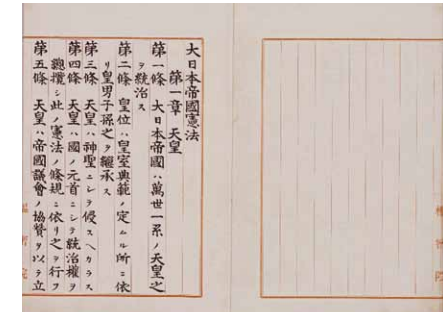 大日本帝國憲法
第一章 天皇
第一條 大日本帝國ハ萬世一系ノ天皇之
ヲ統治ス
第二條 皇位ハ皇室典範ノ定ムル所ニ依
リ皇男子孫之ヲ繼承ス
第三條 天皇ハ神聖ニシテ侵スヘカラス
第四條 天皇ハ國ノ元首ニシテ統治權ヲ
總攬シ此ノ憲法ノ條規ニ依リ之ヲ行フ
第五條 天皇ハ帝國議會ノ協贊ヲ以テ立
樞密院
樞密院